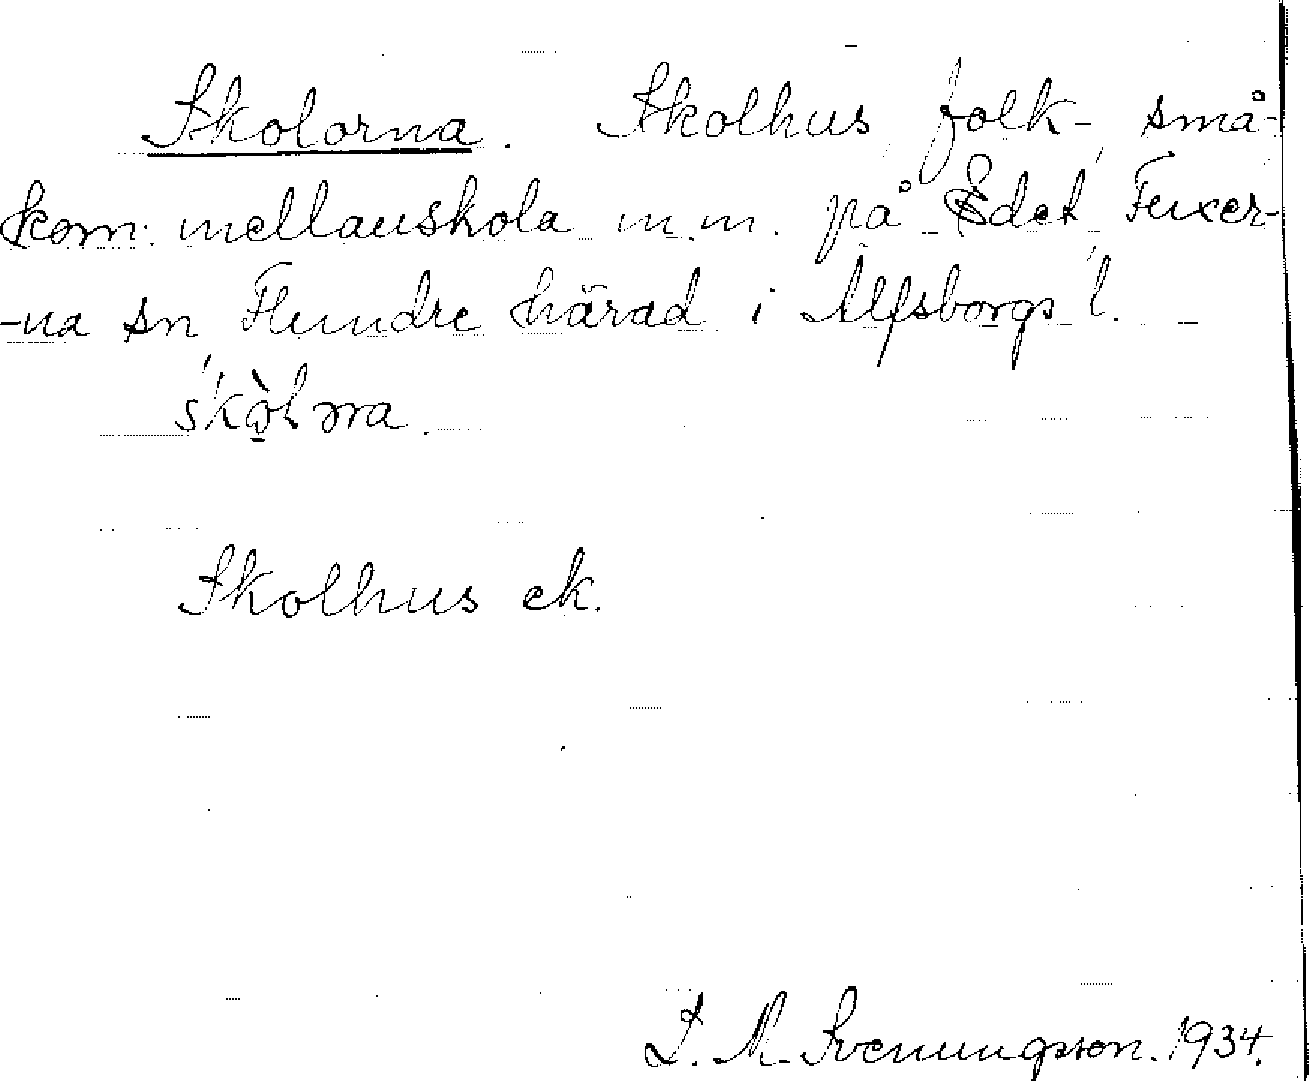 Skolorna. Skolhus folk- små-
kom. mellanskola m.m. på Edet Fuxer-
-na sn Flundre härad i Älfsborgs l.
Skolhus ek.
L. M. Svenungsson. 1934.